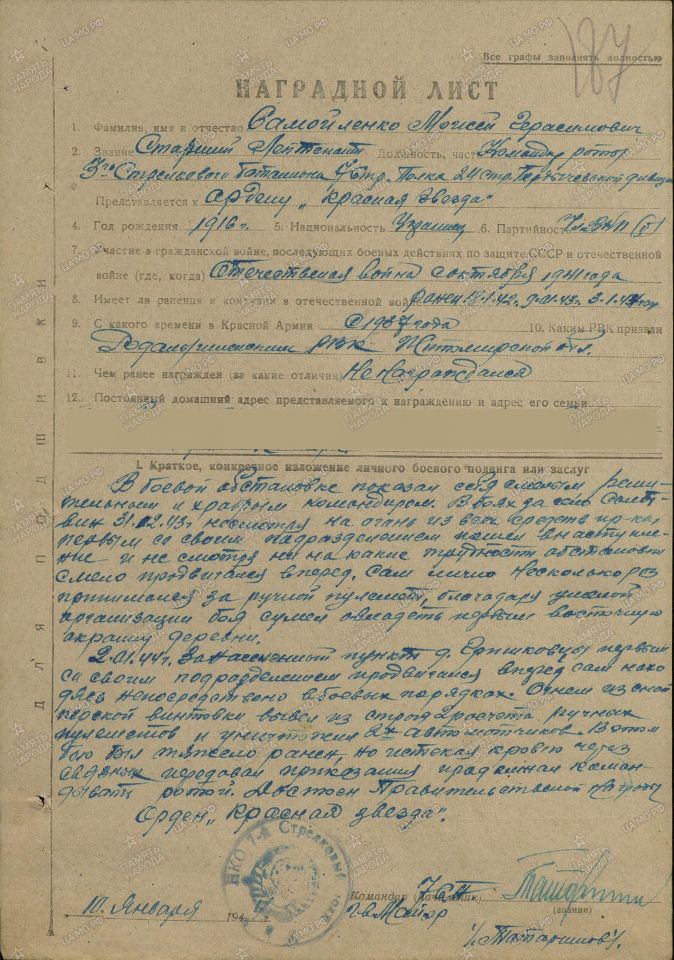 187
Все графы заполнять полностью
НАГРАДНОЙ ЛИСТ
1. Фамилия, имя и отчество Самойленко Моисей Герасимович
2. Звание Старший Лейтенант Должность, часть Командир роты
3го Стрелкового баталиона 7 стр. Полка 24 стр. Бердичевской дивизии
Представляется к ордену „Красная Звезда"
4. Год рождения 1916 г. 5. Национальность Украинец 6. Партийность ВКП(б)
7. Участие в гражданской войне, последующих боевых действиях по защите СССР и отечественной
войне (где, когда) Отечественая война с октября 1941 года
8. Имеет ли ранения и контузии в отечественной войне ранен 18.1.42. 9.01.43. 3.1.44 год
9. С какого времени в Красной Армии с 1937 года 10. Каким РВК призван
РВК Житомирской обл.
11. Чем ранее награжден (за какие отличия) Не награждался
12. Постоянный домашний адрес представляемого к награждению и адрес его семьи
I. Краткое, конкретное изложение личного боевого подвига или заслуг
В боевой обстановке показал себя смелым реши-
тельным и храбрым командиром. В боях за село
31.12.43г. несмотря на огонь из всех средств пр-ка
первым со своим подразделением пошел в наступле-
ние и не смотря ни на какие трудности обстановки
смело продвигался вперед, сам лично несколько раз
принимался за ручной пулемет, благодаря умелой
организации боя сумел овладеть первым восточную
акраину деревни.
2.01.44г. За населенный пункт д. Гришковцы первым
со своим подразделением продвигался вперед сам нахо
дясь непосредствено в боевых порядках. Огнем из снай
перской винтовки вывел из строя 2 расчета ручных
пулеметов и уничтожил автоматчиков. В этом
бою был тяжело ранен, но истекая кровью через
передавал приказания продолжая коман-
дывать ротой. Достоен Правительственой награды
Орден „Красная звезда".
НКО 7-й Стрелковый
10. Января 194 г.
Командир (начальник) 7 СП
Гв. Майор
(звание)
/Татаринов/.
ДЛЯ ПОДШИВКИ
ПАМЯТЬ НАРОДА
ЦАМО.РФ